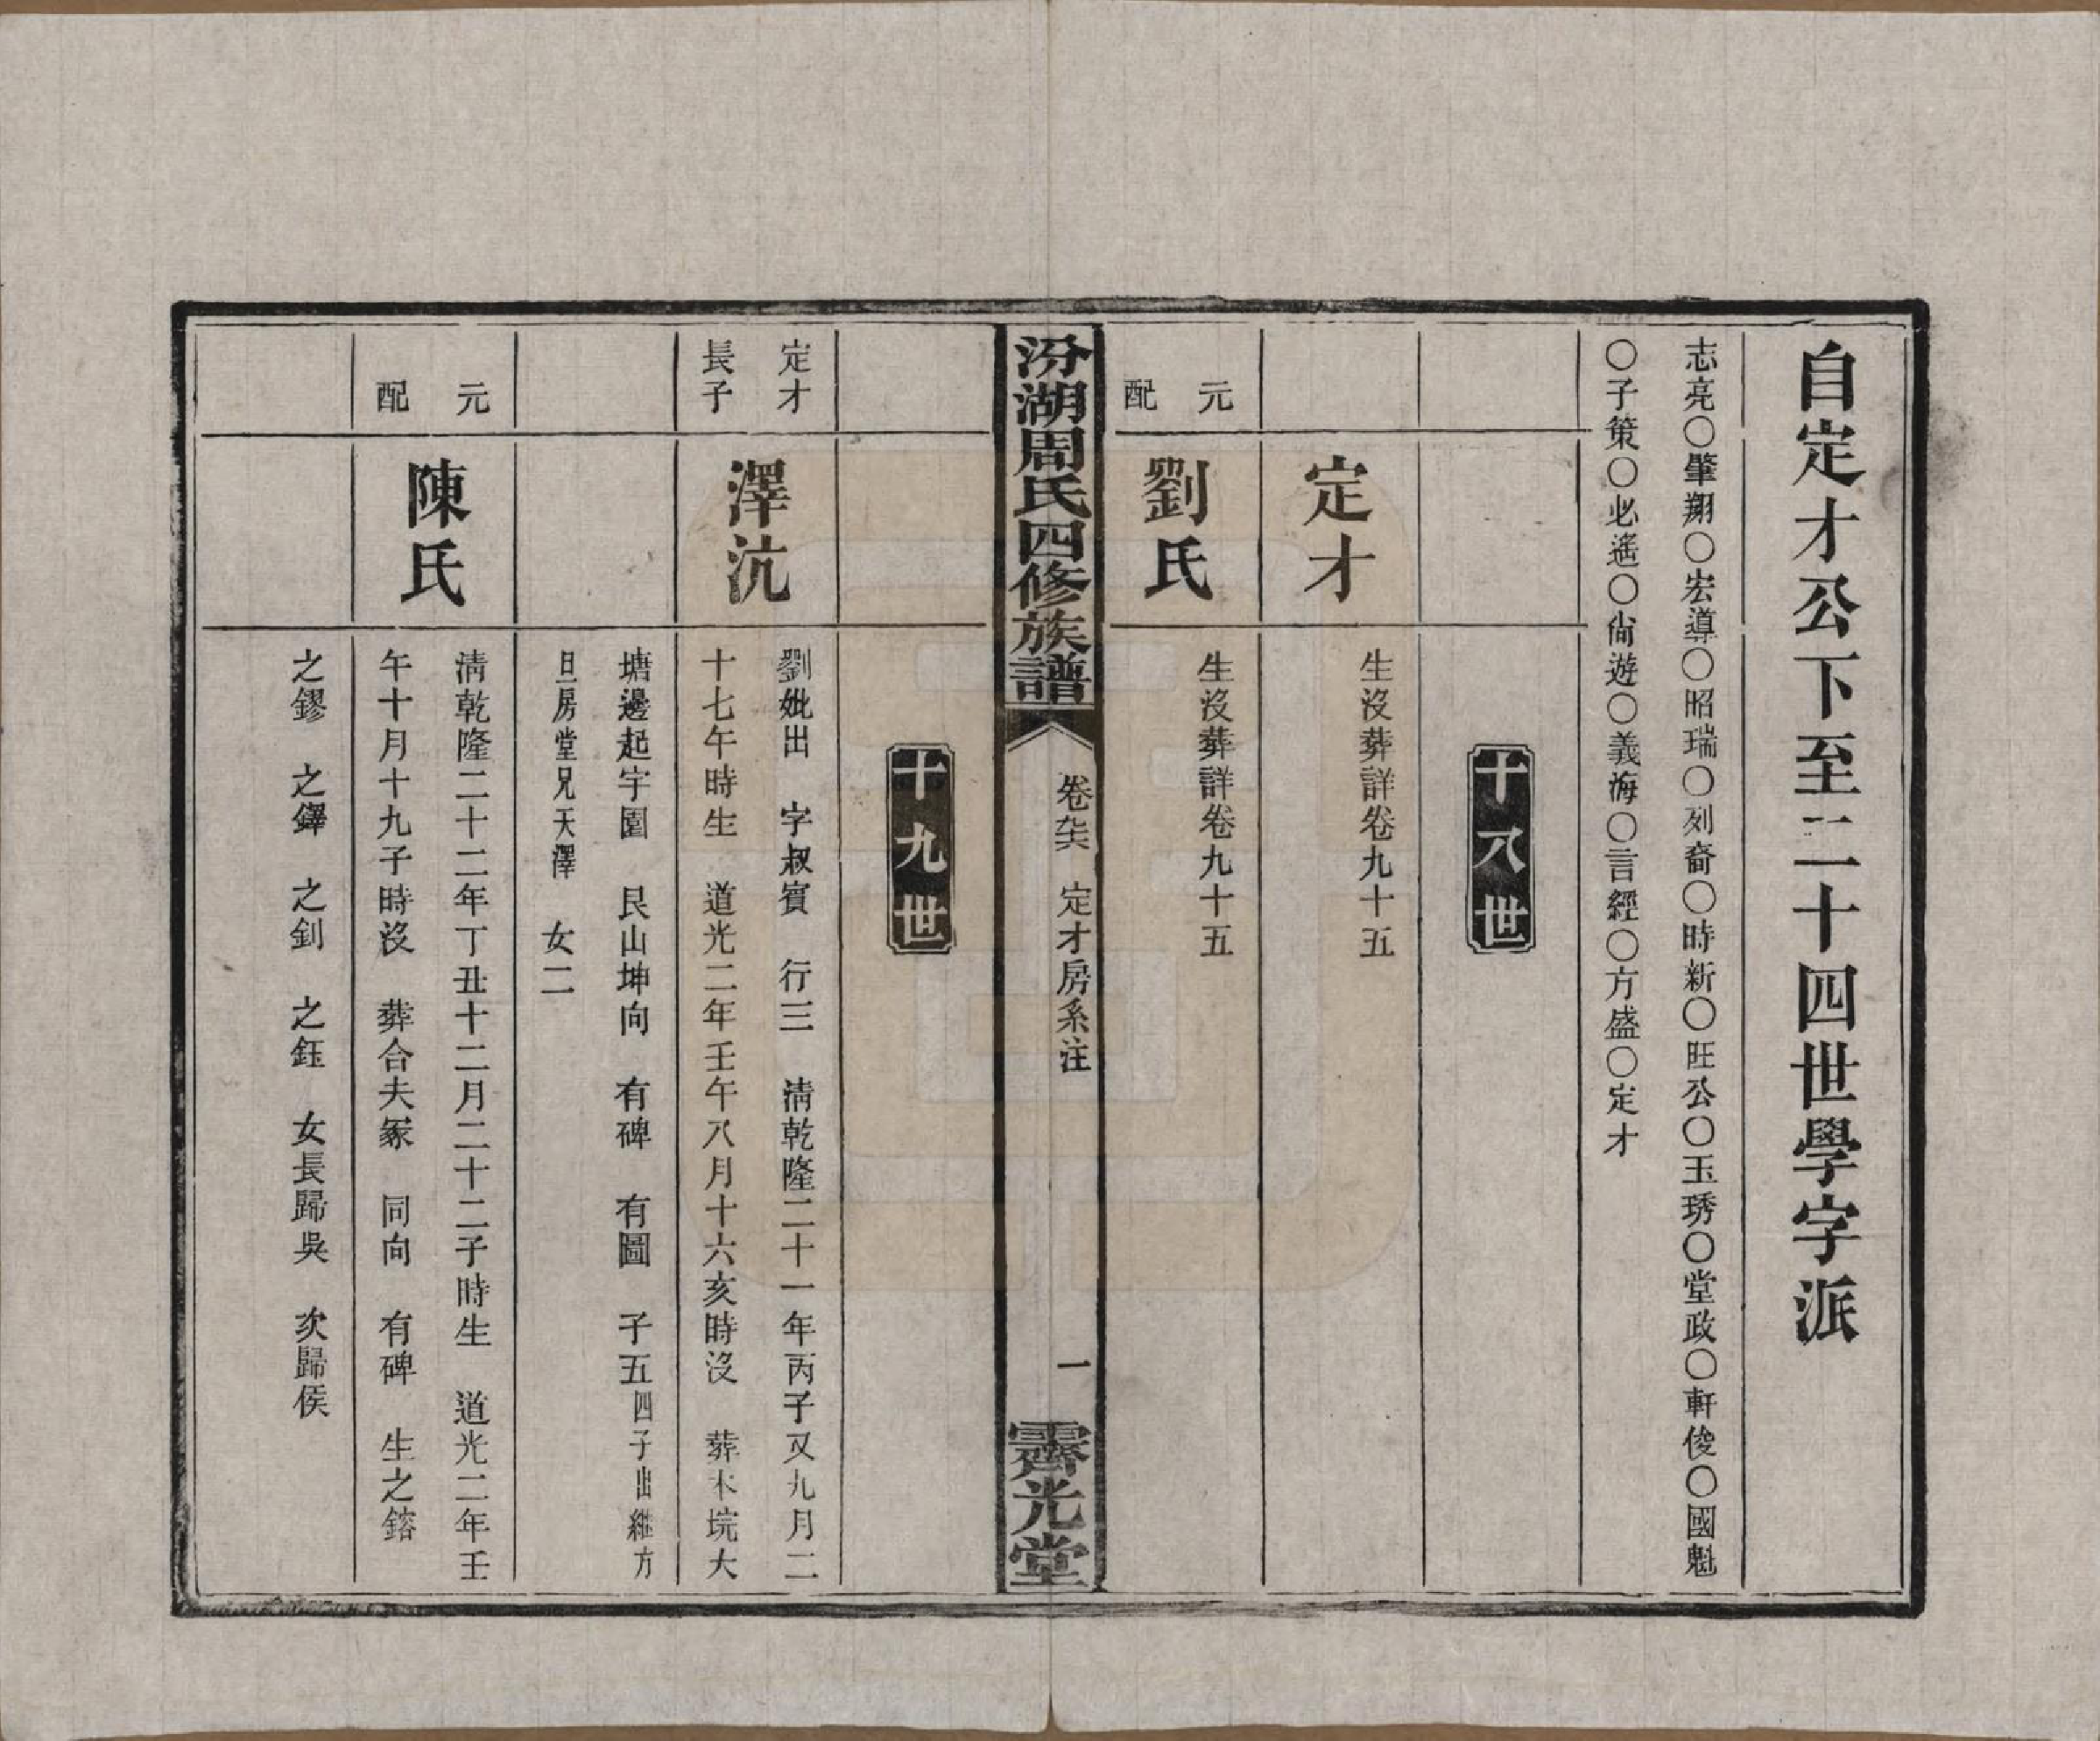 自定才公下至二十四世學字派
志亮〇肇翔〇宏導〇昭瑞〇列裔〇時新〇旺公〇玉琇〇堂政〇軒俊〇國魁
〇子策〇必遙〇尙遊〇義海〇言經〇方盛〇定才
十八世
定才
生沒葬詳卷九十五
元配
劉氏
生沒葬詳卷九十五
汾湖周氏四修族譜
卷 定才房系注
一
霽光堂
十九世
定才長子
澤沆
劉妣出 字叔賓 行三 淸乾隆二十一年丙子又九月二
十七午時生 道光二年壬午八月十六亥時沒 葬木垸大
塘邊起字園 艮山坤向 有碑 有圖 子五四子出繼方
旦房堂兄天澤 女二
元配
陳氏
淸乾隆二十二年丁丑十二月二十二子時生 道光二年壬
午十月十九子時沒 葬合夫冢 同向 有碑 生之鎔
之鏐 之鐸 之釗 之鈺 女長歸吳 次歸侯